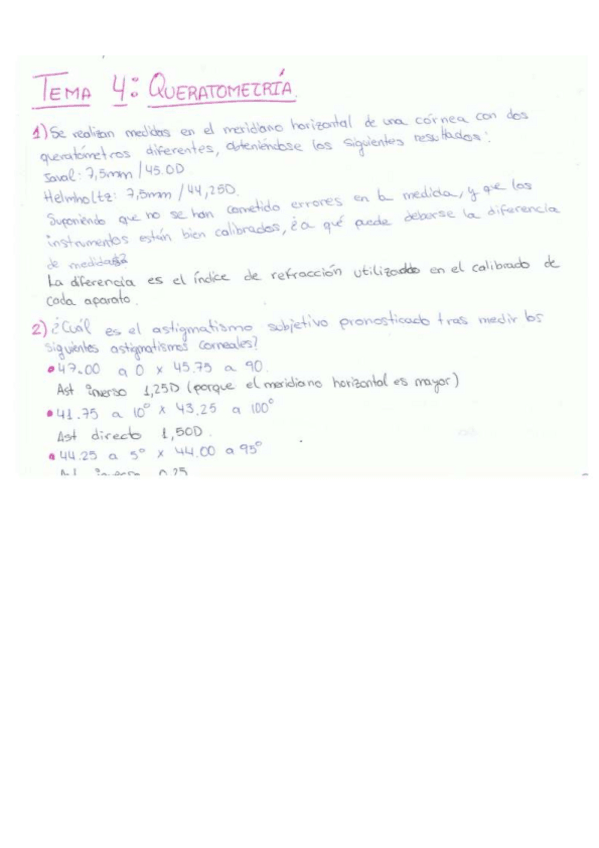 TEMA 4: QUERATOMETRÍA
1) Se realizan medidas en el meridiano horizontal de una córnea con dos
queratómetros diferentes, obteniéndose los siguientes resultados:
Javal: 7,5mm /45.0D
Helmholtz: 7,5mm / 44,25D.
Suponiendo que no se han cometido errores en la medida, y que los
instrumentos están bien calibrados, ¿a qué puede deberse la diferencia
de medidas?
La diferencia es el índice de refracción utilizado en el calibrado de
cada aparato.
2) ¿Cuál es el astigmatismo subjetivo pronosticado tras medir los
siguientes astigmatismos corneales?
• 47.00 a 0 x 45.75 a 90.
Ast inverso 1,25D (porque el meridiano horizontal es mayor)
• 41.75 a 10° x 43,25 a 100°
Ast directo 1,50D.
• 44.25 a 5° x 44.00 a 95°
Ast inverso 0.25